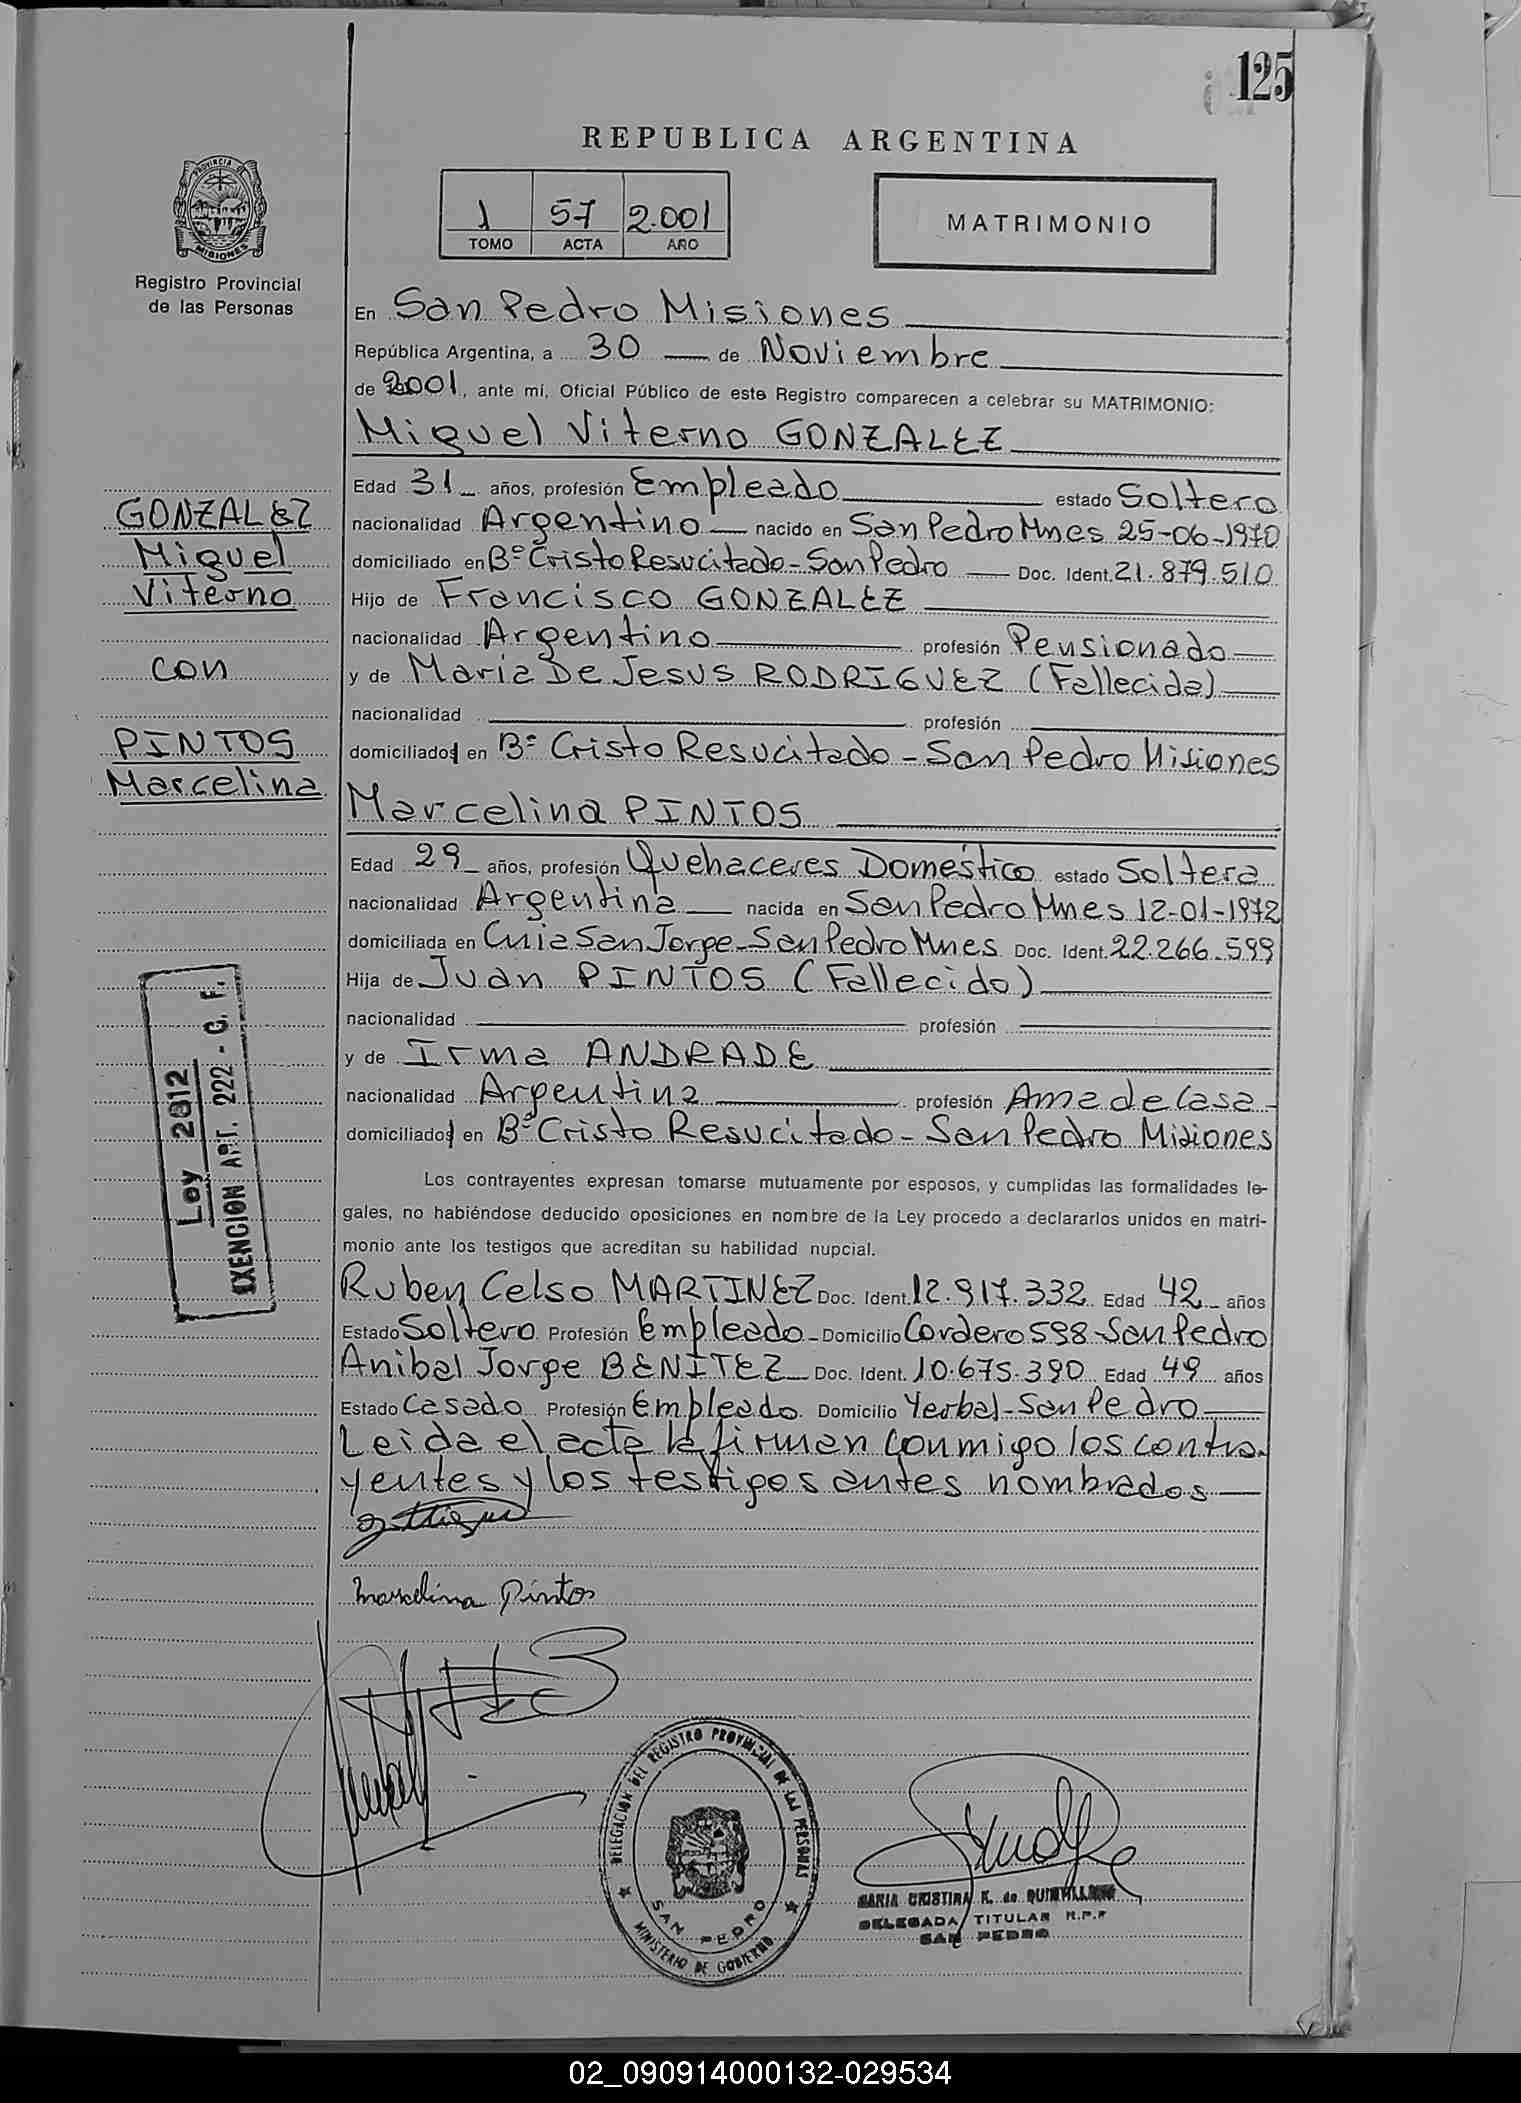 125
REPUBLICA ARGENTINA
1 57 2.001
TOMO ACTA AÑO
MATRIMONIO
PROVINCIA DE
MISIONES
Registro Provincial
de las Personas
En San Pedro Misiones
República Argentina, a 30 de Noviembre
de 2001, ante mí, Oficial Público de este Registro comparecen a celebrar su MATRIMONIO:
Miguel Viterno GONZALEZ
Edad 31 años, profesión Empleado estado Soltero
nacionalidad Argentino nacido en San Pedro Mnes 25-06-1970
domiciliado en Bº Cristo Resucitado - San Pedro Doc. Ident. 21.879.510
Hijo de Francisco GONZALEZ
nacionalidad Argentino profesión Pensionado
y de Maria De Jesus RODRIGUEZ (Fallecida)
nacionalidad profesión
domiciliados en Bº Cristo Resucitado - San Pedro Misiones
Marcelina PINTOS
Edad 29 años, profesión Quehaceres Doméstico estado Soltera
nacionalidad Argentina nacida en San Pedro Mnes 12-01-1972
domiciliada en Cnia San Jorge - San Pedro Mnes Doc. Ident. 22.266.599
Hija de Juan PINTOS (Fallecido)
nacionalidad profesión
y de Irma ANDRADE
nacionalidad Argentina profesión Ama de Casa
domiciliados en Bº Cristo Resucitado - San Pedro Misiones
Los contrayentes expresan tomarse mutuamente por esposos, y cumplidas las formalidades le-
gales, no habiéndose deducido oposiciones en nombre de la Ley procedo a declararlos unidos en matri-
monio ante los testigos que acreditan su habilidad nupcial.
Ruben Celso MARTINEZ Doc. Ident. 12.917.332 Edad 42 años
Estado Soltero Profesión Empleado - Domicilio Cordero 598 - San Pedro
Anibal Jorge BENITEZ Doc. Ident. 10.675.390 Edad 49 años
Estado Casado Profesión Empleado. Domicilio Yerbal - San Pedro
Leida el acta la firman conmigo los contra-
yentes y los testigos antes nombrados
Marcelina Pintos
GONZALEZ
Miguel
Viterno
con
PINTOS
Marcelina
Ley 2812
EXENCION ART. 222 - C. F.
DELEGACION DEL REGISTRO PROVINCIAL DE LAS PERSONAS
SAN PEDRO
MINISTERIO DE GOBIERNO
MARIA CRISTINA K. de
DELEGADA TITULAR R.P.P
SAN PEDRO
02_090914000132-029534